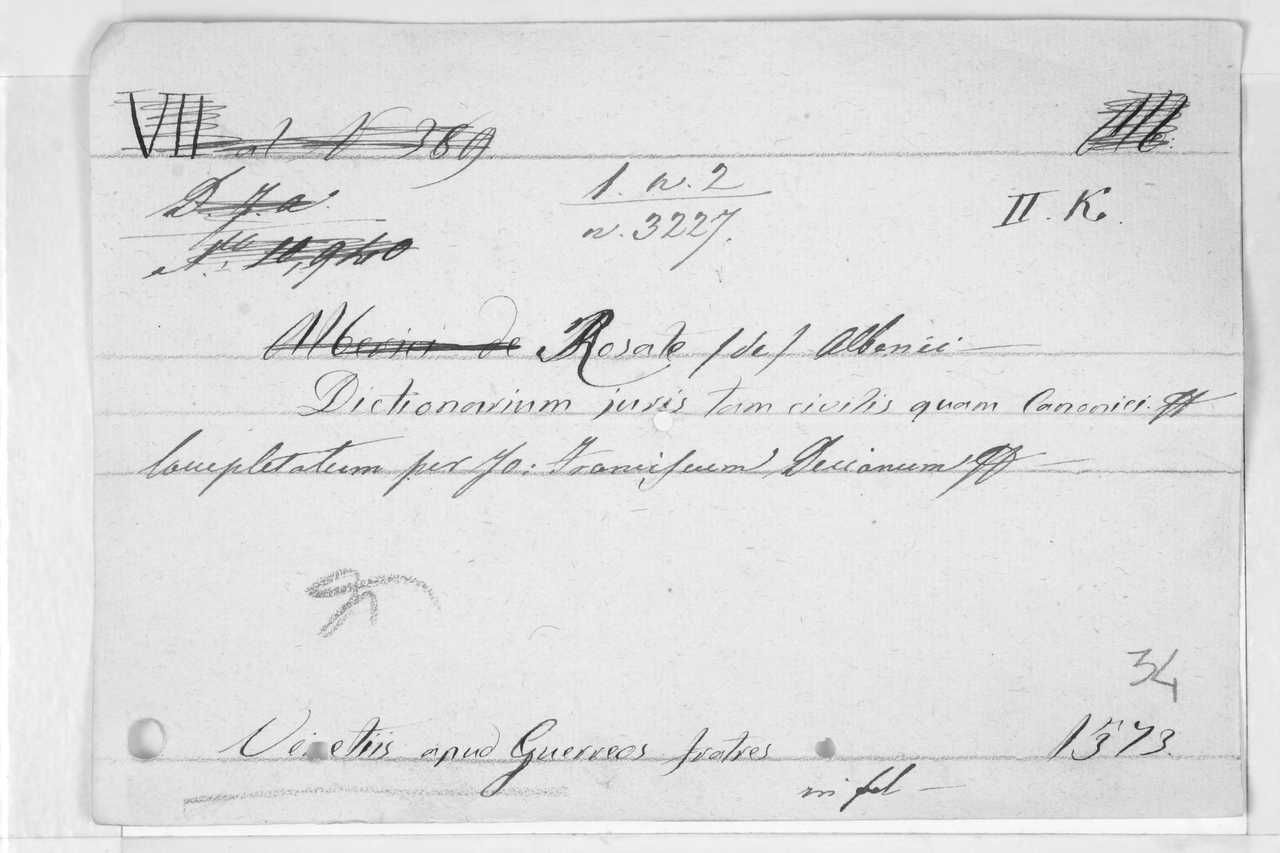 VII al N 389.
D. J. a.
N.º 10,940
1. n. 2
n. 3227.
II. K.
Alberici de Rosate /de/ Alberici
Dictionarium juris tam civilis quam Canonici.
locupletatum per Jo: Franciscum Decianum
34
Venetiis apud Guerreos fratres 1573.
in fol